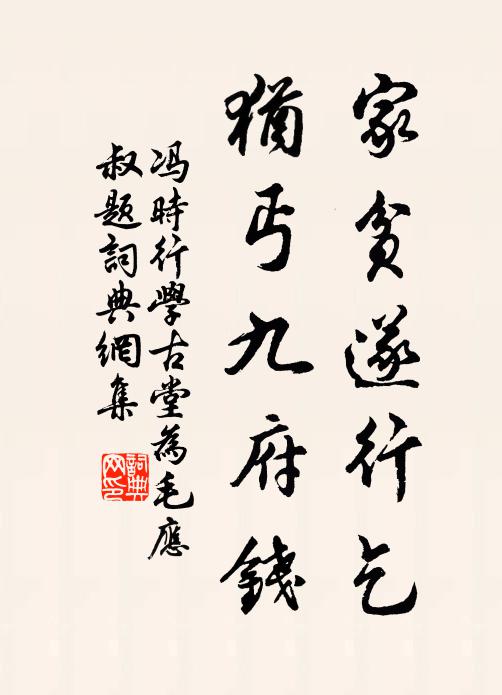 家貧遂行乞
猶丐九府錢
冯時行學古堂為毛應
叔题詞典網集
詞典网印